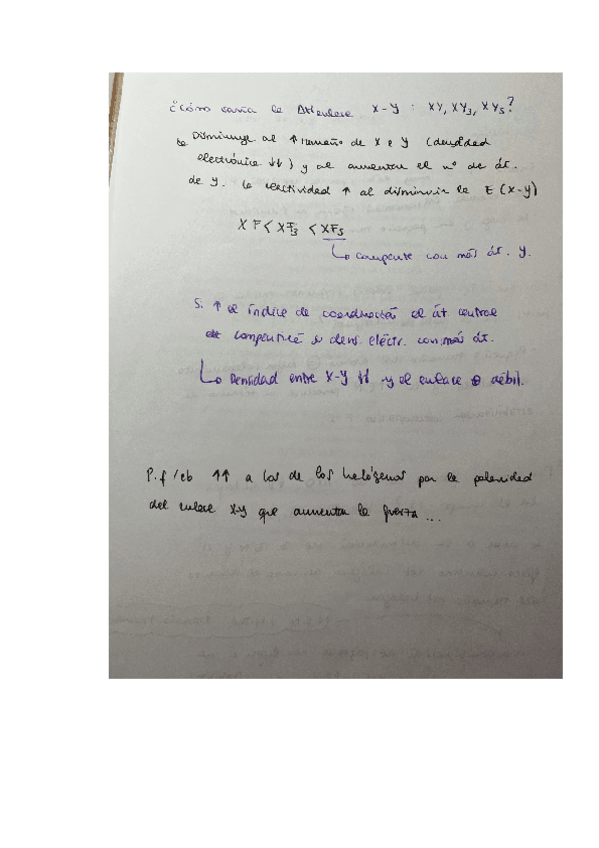 ¿Cómo varía la ΔHenlace X-Y : XY, XY3, XY5?
Disminuye al ↑ tamaño de X e Y (densidad
electrónica ↓↓) y al aumentar el nº de át.
de Y. La reactividad ↑ al disminuir la E (X-Y)
XF < XF3 < XF5
↳ comparte con más át. Y.
Si ↑ el índice de coordinación el át central
compartirá su dens. eléctr. con más át.
↳ Densidad entre X-Y ↓↓ y el enlace ⊕ débil.
P.f /eb ↑↑ a los de los halógenos por la polaridad
del enlace X-Y que aumenta la fuerza...